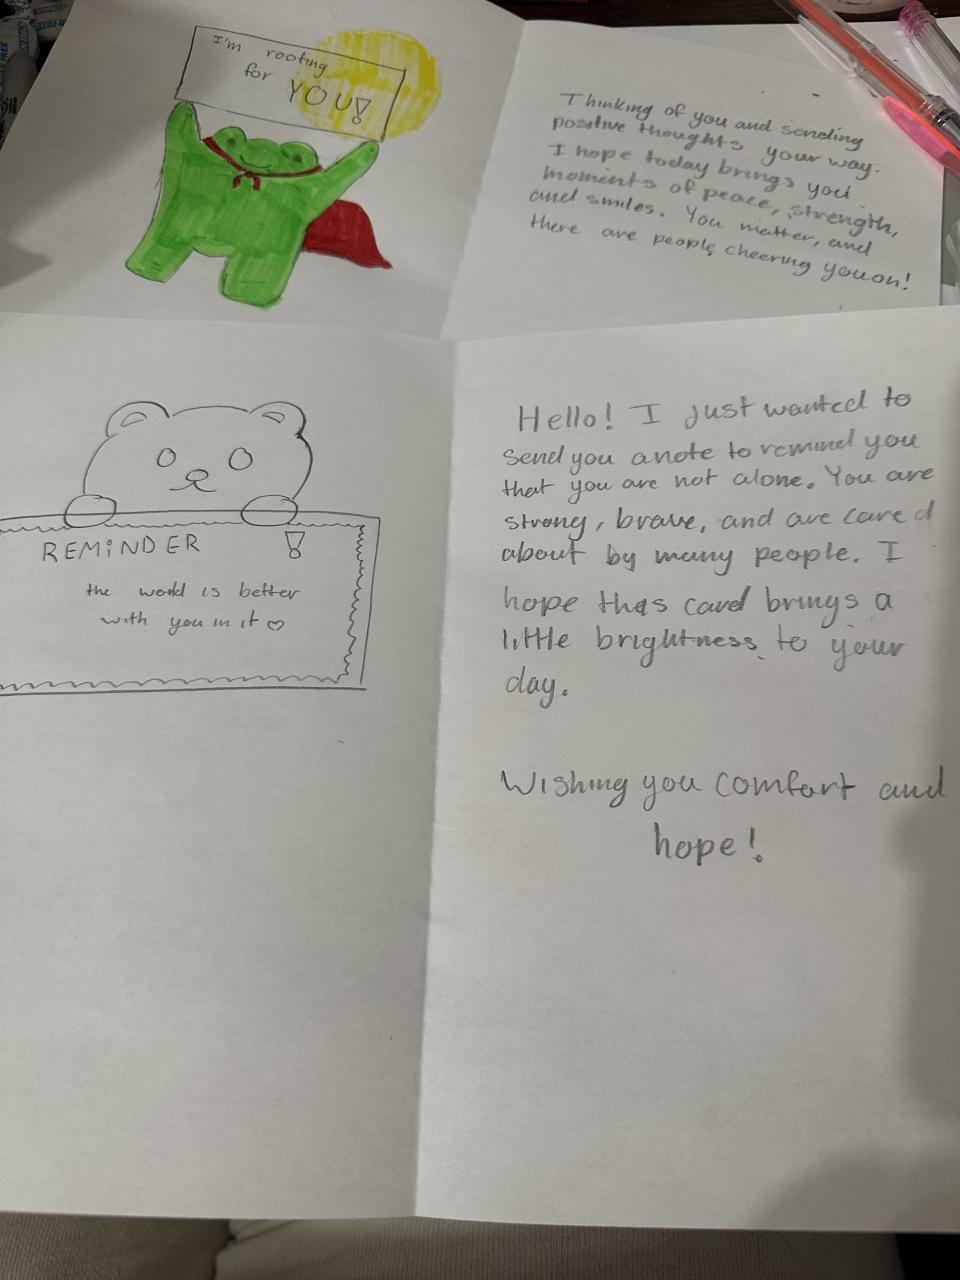 I'm rooting
for YOU!
Thinking of you and sending
positive thoughts your way.
I hope today brings you
moments of peace, strength,
and smiles. You matter, and
there are people cheering you on!
REMINDER !
the world is better
with you in it ♡
Hello! I just wanted to
send you a note to remind you
that you are not alone. You are
strong, brave, and are cared
about by many people. I
hope this card brings a
little brightness to your
day.
Wishing you comfort and
hope!